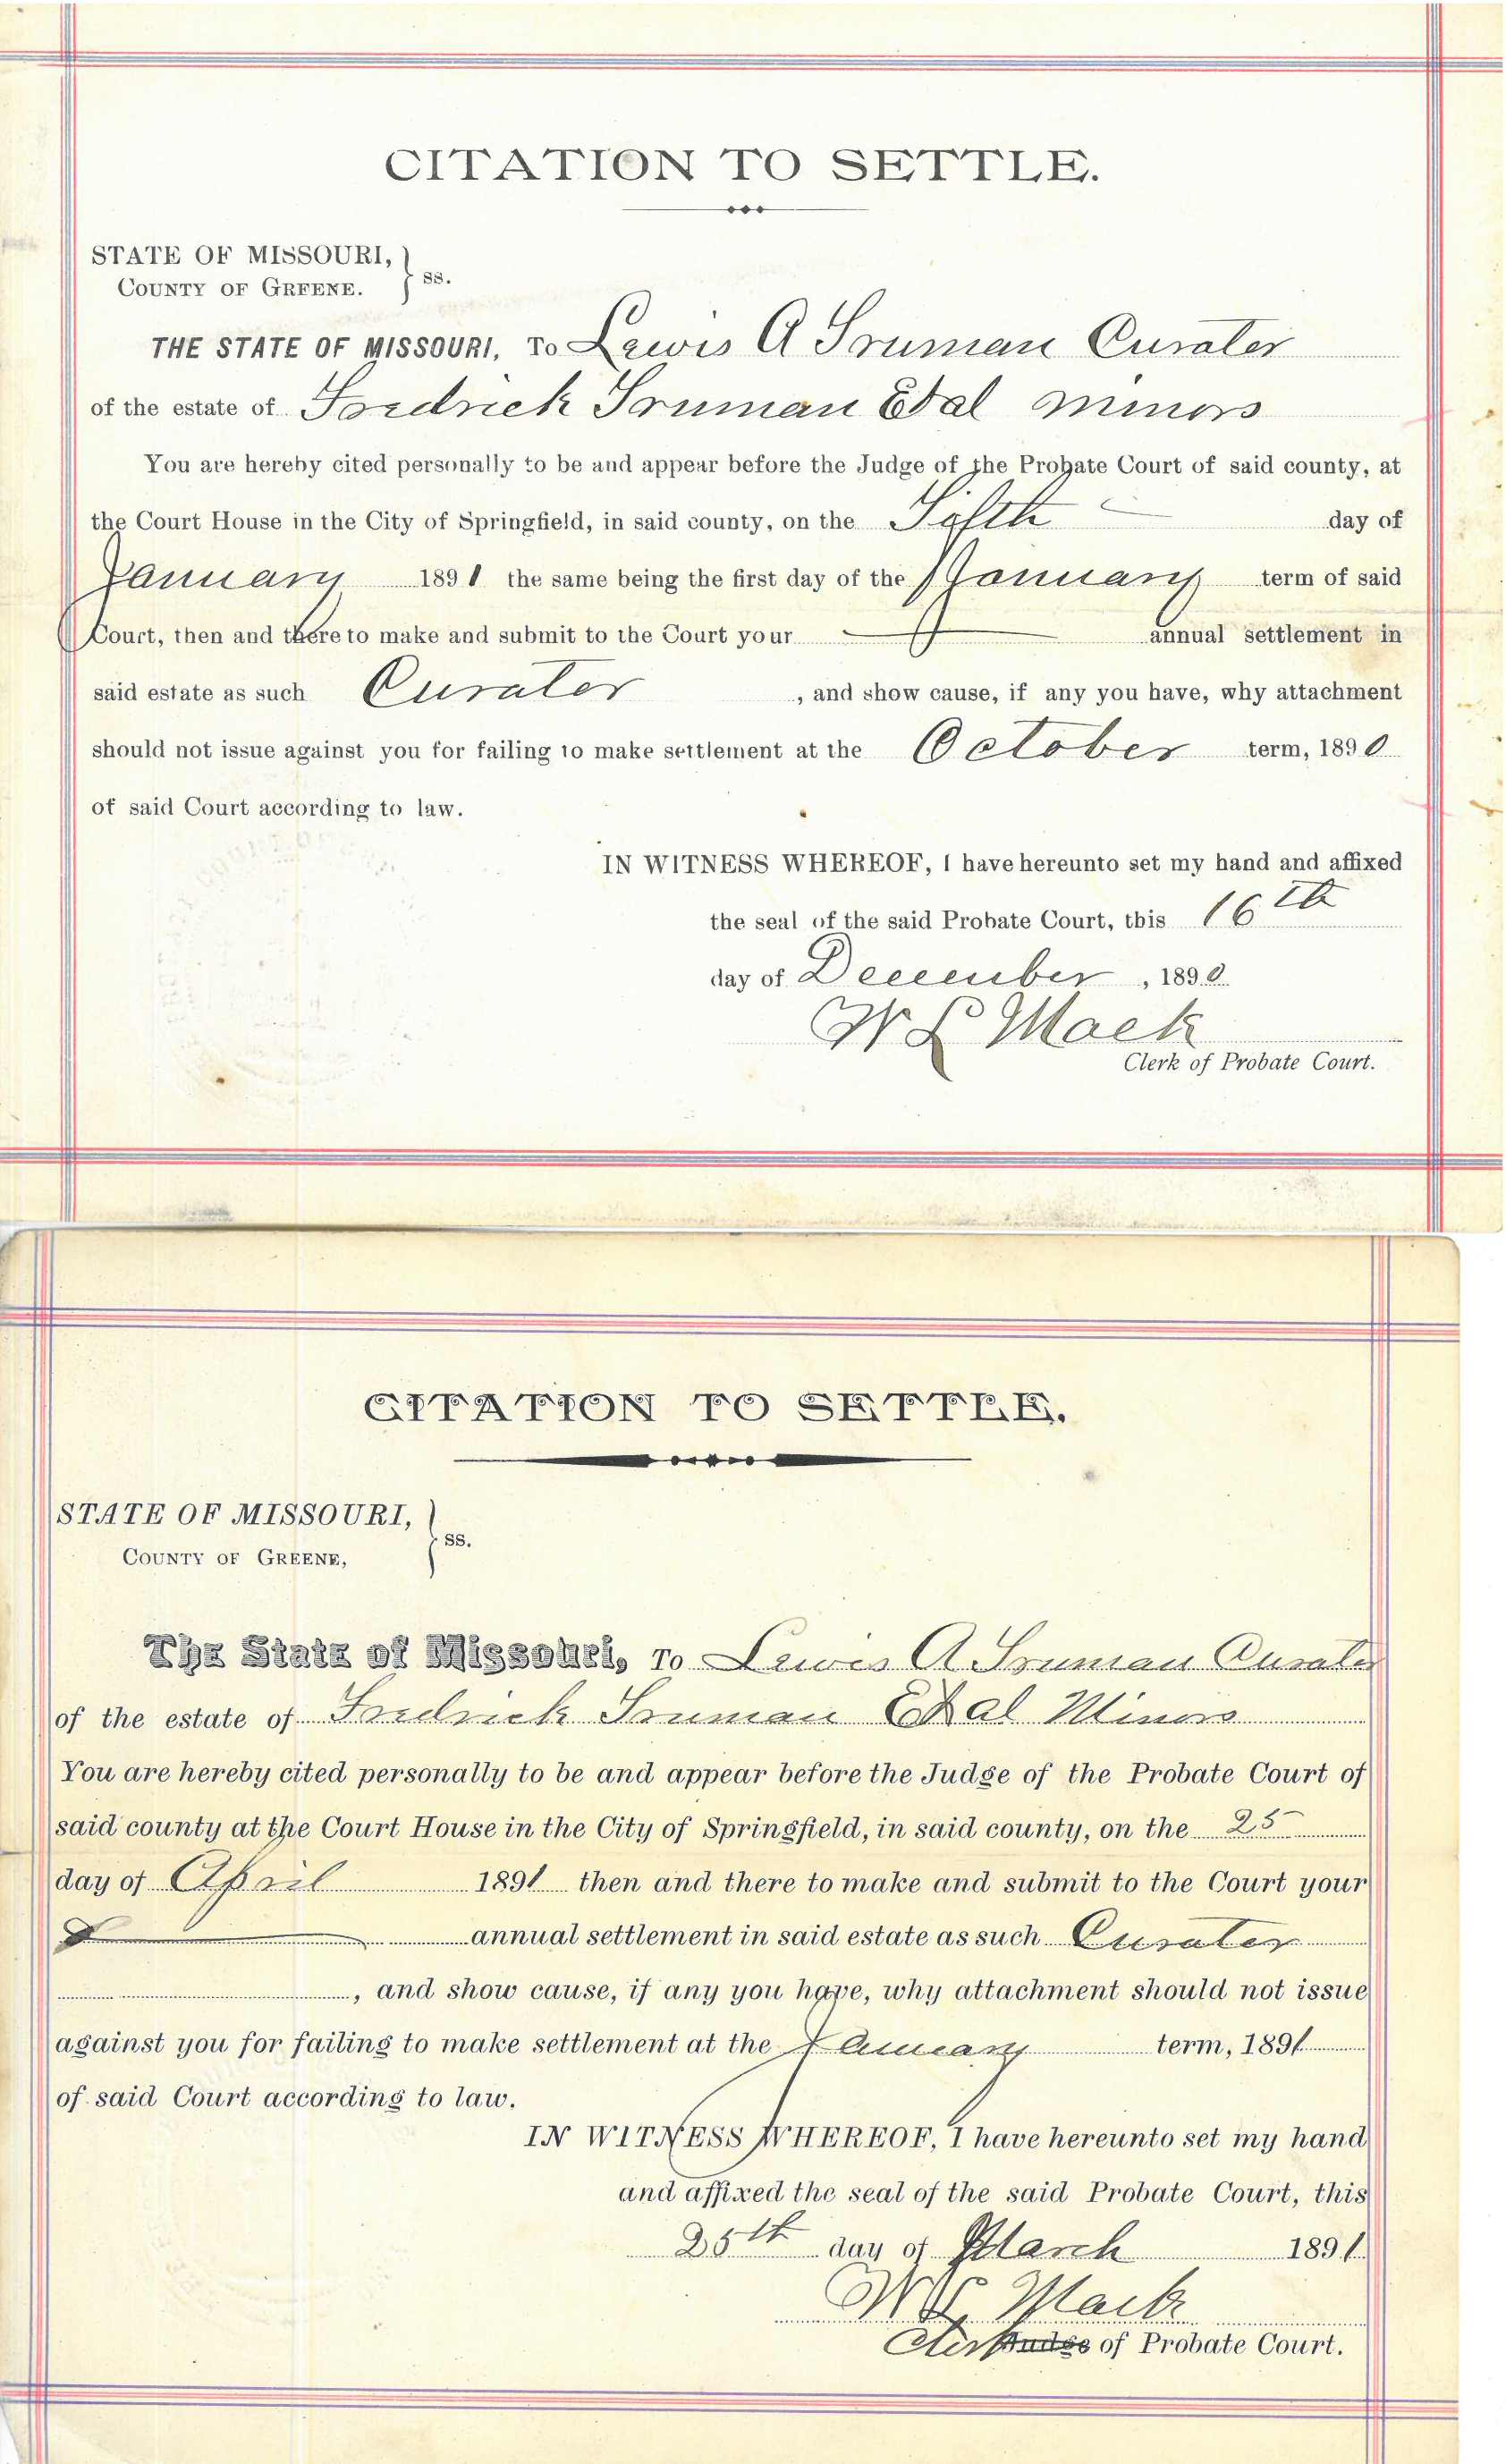 CITATION TO SETTLE.
STATE OF MISSOURI,
COUNTY OF GREENE. } ss.
THE STATE OF MISSOURI, TO Lewis A Truman Curater
of the estate of Fredrick Truman Etal minors
You are hereby cited personally to be and appear before the Judge of the Probate Court of said county, at
the Court House in the City of Springfield, in said county, on the Fifth day of
January 1891 the same being the first day of the January term of said
Court, then and there to make and submit to the Court your annual settlement in
said estate as such Curater, and show cause, if any you have, why attachment
should not issue against you for failing to make settlement at the October term, 1890
of said Court according to law.
IN WITNESS WHEREOF, I have hereunto set my hand and affixed
the seal of the said Probate Court, this 16th
day of December, 1890
W L Mack
Clerk of Probate Court.
CITATION TO SETTLE.
STATE OF MISSOURI,
COUNTY OF GREENE, } ss.
The State of Missouri, TO Lewis A Truman Curater
of the estate of Fredrick Truman Etal Minors
You are hereby cited personally to be and appear before the Judge of the Probate Court of
said county at the Court House in the City of Springfield, in said county, on the 25
day of April 1891 then and there to make and submit to the Court your
annual settlement in said estate as such Curater
, and show cause, if any you have, why attachment should not issue
against you for failing to make settlement at the January term, 1891
of said Court according to law.
IN WITNESS WHEREOF, I have hereunto set my hand
and affixed the seal of the said Probate Court, this
25th day of March 1891
W L Mack
Clerk Judge of Probate Court.